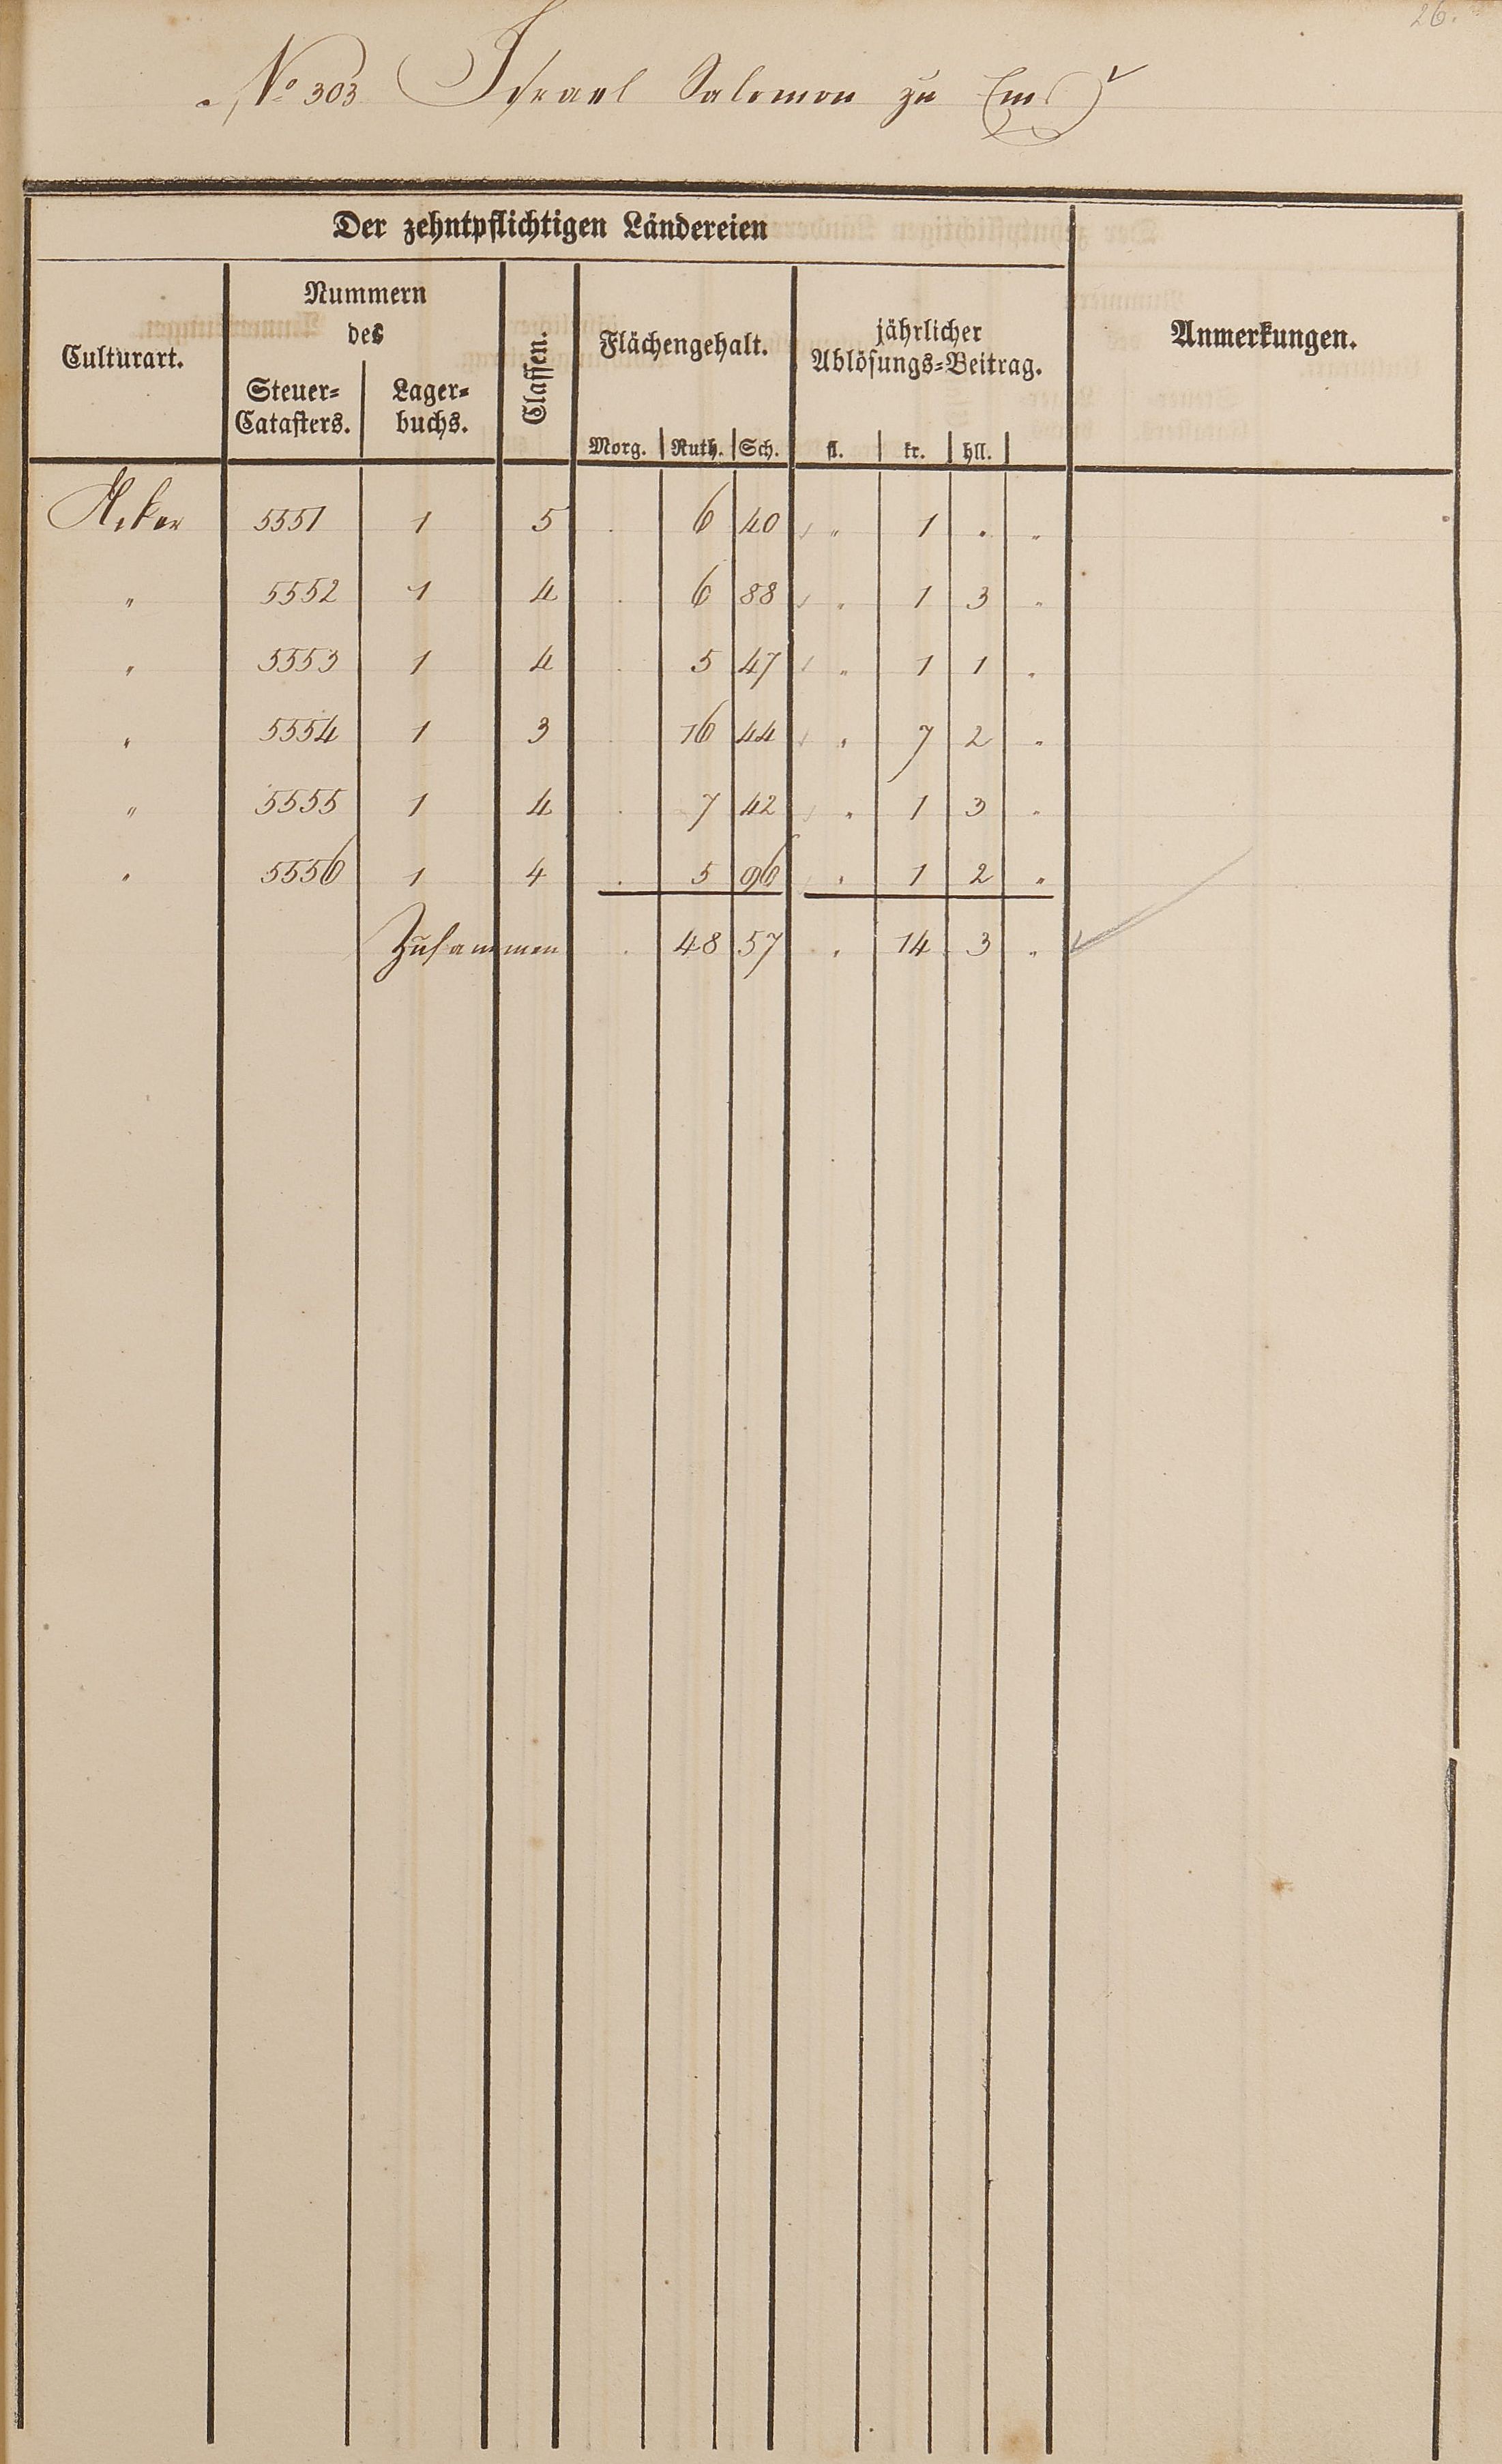 26.
No 303 Israel Salomon zu Ems
Der zehntpflichtigen Ländereien
Culturart.
Nummern
des
Steuer=
Catasters.
Lager=
buchs.
Classen.
Flächengehalt.
Morg. Ruth. Sch.
jährlicher
Ablösungs=Beitrag.
fl. kr. hll.
Anmerkungen.
Acker 5551 1 5 . 6 40 " 1 . "
" 5552 1 4 . 6 88 " 1 3 "
" 5553 1 4 . 5 47 " 1 1 "
" 5554 1 3 . 16 44 " 7 2 "
" 5555 1 4 . 7 42 " 1 3 "
" 5556 1 4 . 5 96 " 1 2 "
Zusammen . 48 57 " 14 3 "